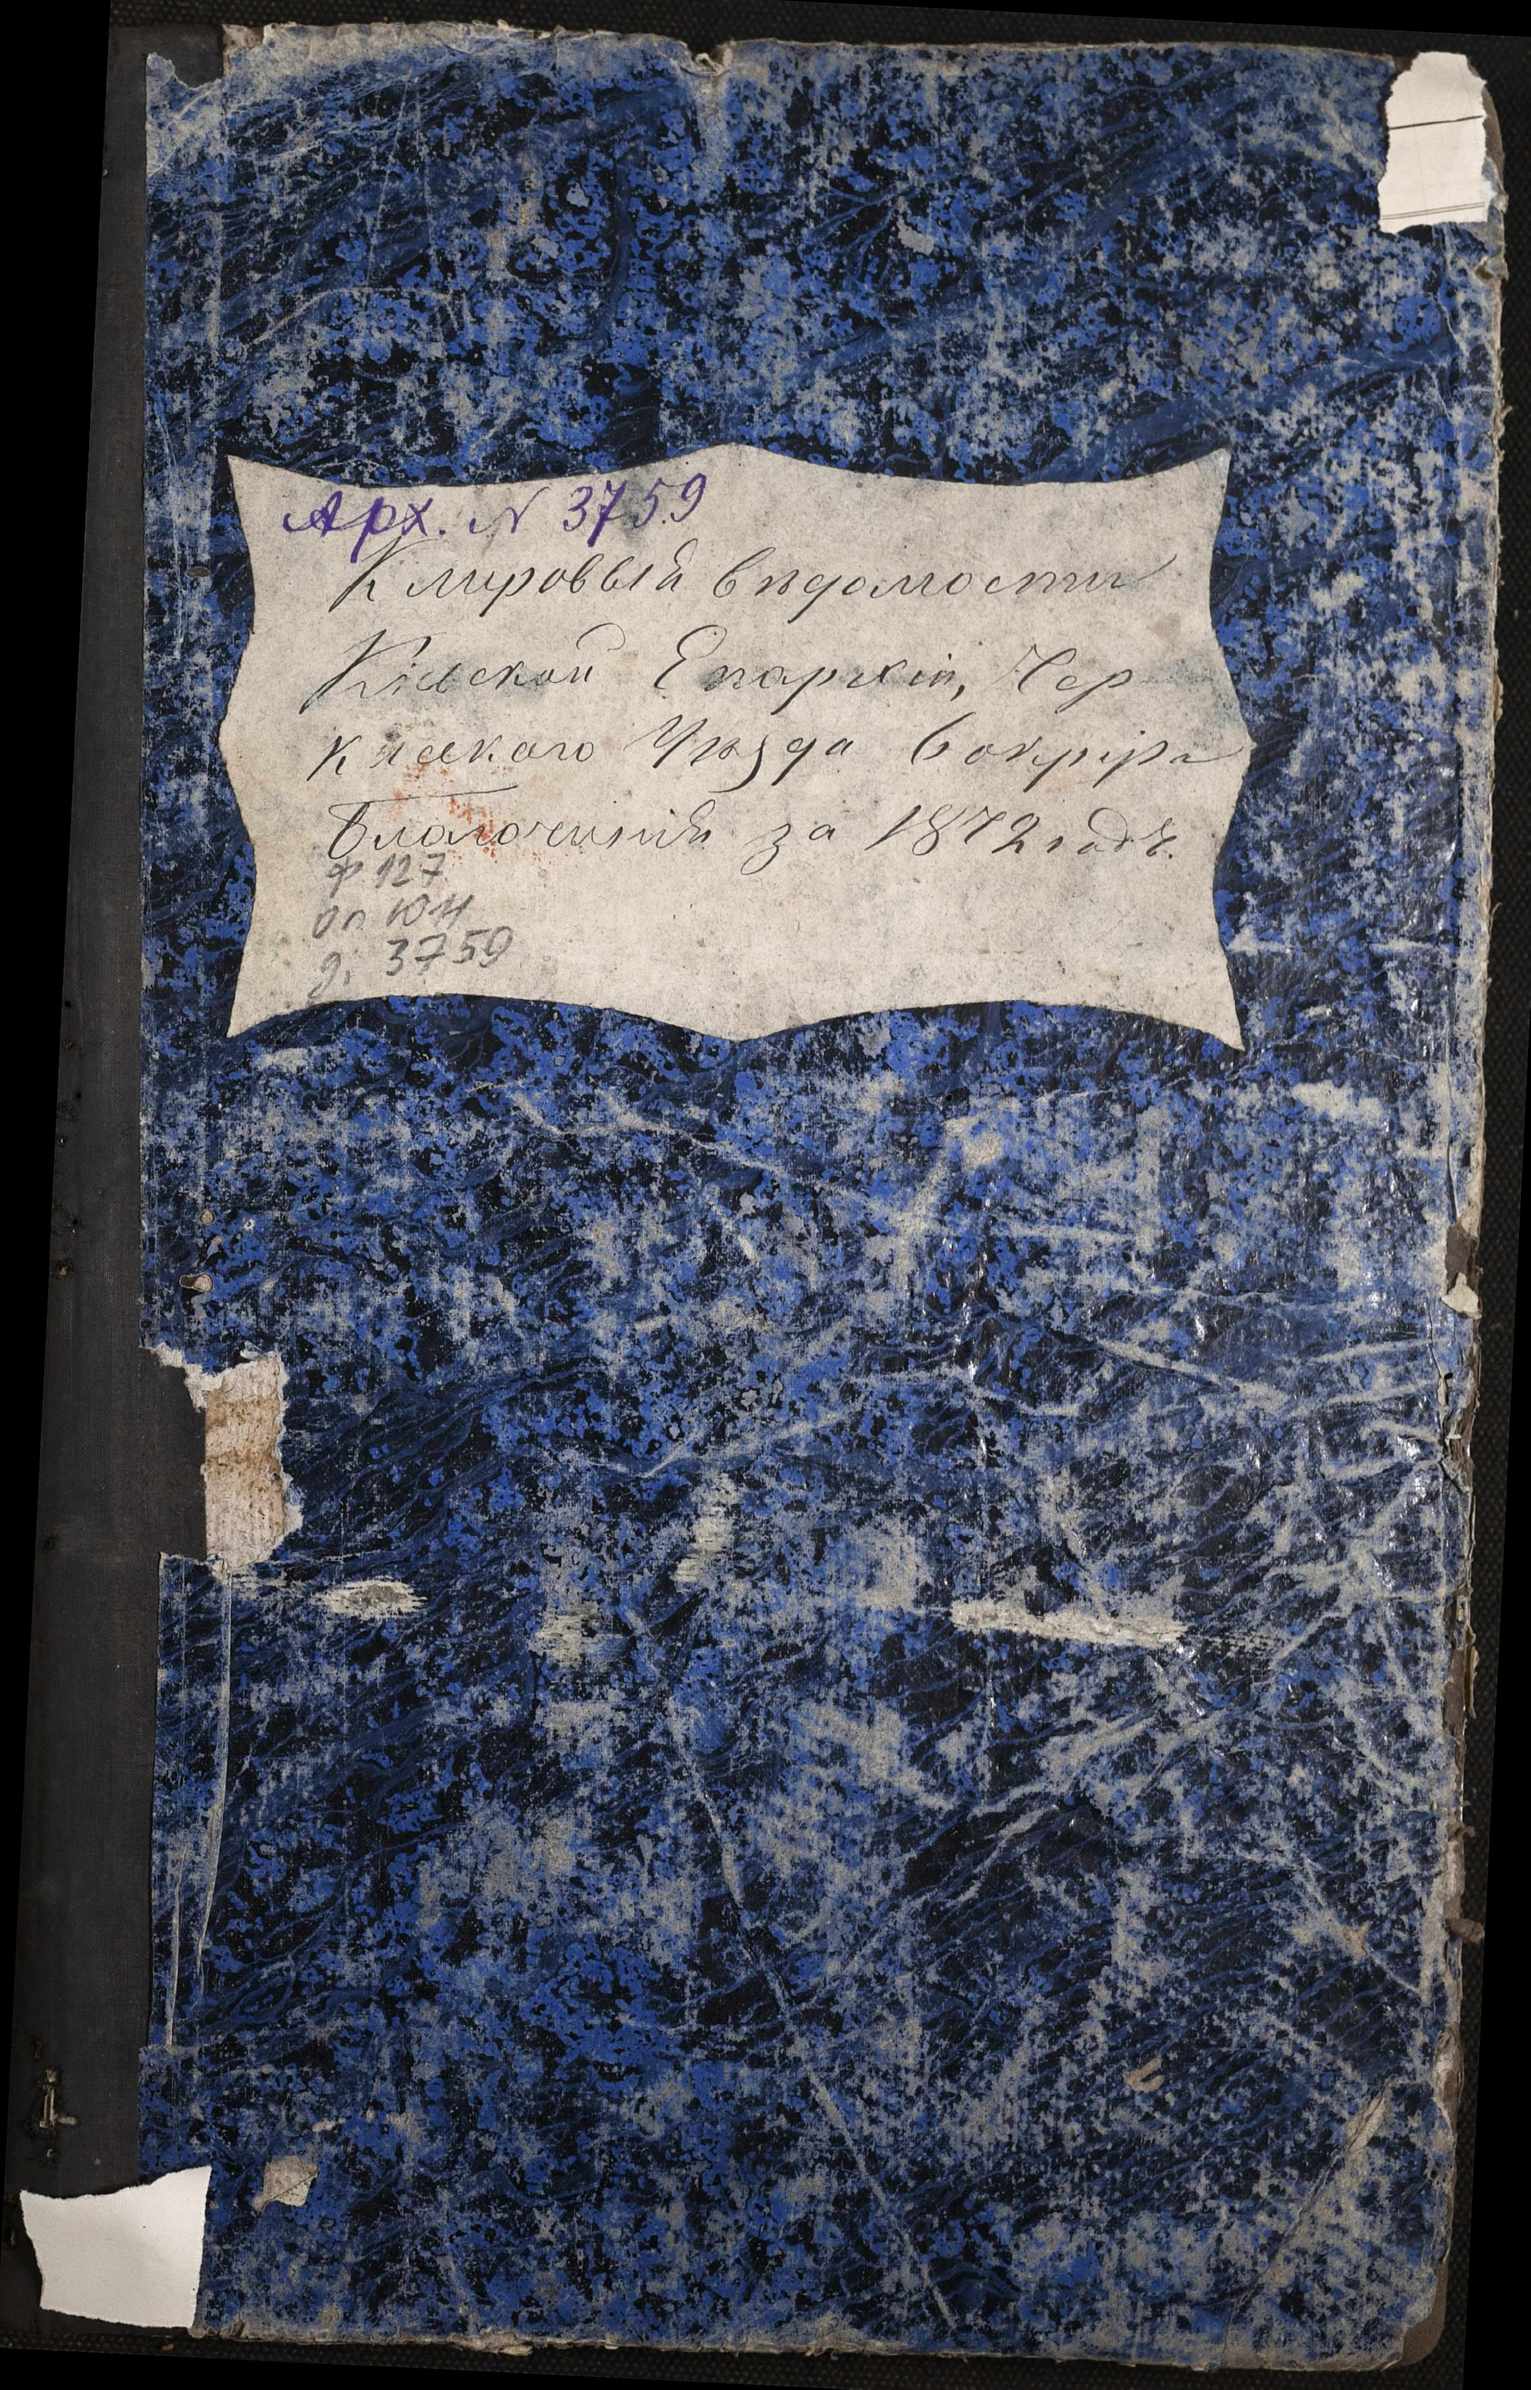 Арх. N 3759
Клировый вѣдомости
Кіевской Епархіи, Чер
каскаго Уѣзда 6 округа
Благочинія за 1872 годъ.
ф. 127
оп 1011
д. 3759